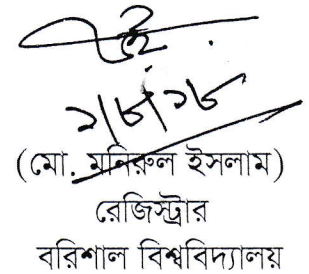 ২/৮/১৮
(মো. মনিরুল ইসলাম)
রেজিস্ট্রার
বরিশাল বিশ্ববিদ্যালয়